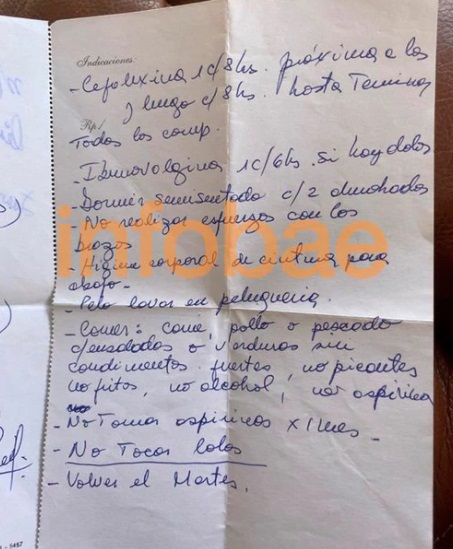 Indicaciones:
- Cefalexina 1 c/8hs. próxima a las
) luego c/8hs. hasta terminar
Rp./
Todos los comp.
- Ibunovalgina 1 c/6hs. si hay dolor
- Dormir semisentada c/2 almohadas
- No realizar esfuerzos con los
brazos
- Higiene corporal de cintura para
abajo -
- Pelo lavar en peluqueria.
- Comer: carne, pollo o pescado
c/ensaladas o verduras sin
condimentos fuertes, no picantes
no fritos, no alcohol, no aspirina
- No Tomar aspirinas x 1 mes -
- No Tocar lolas
- Volver el Martes.
infobae